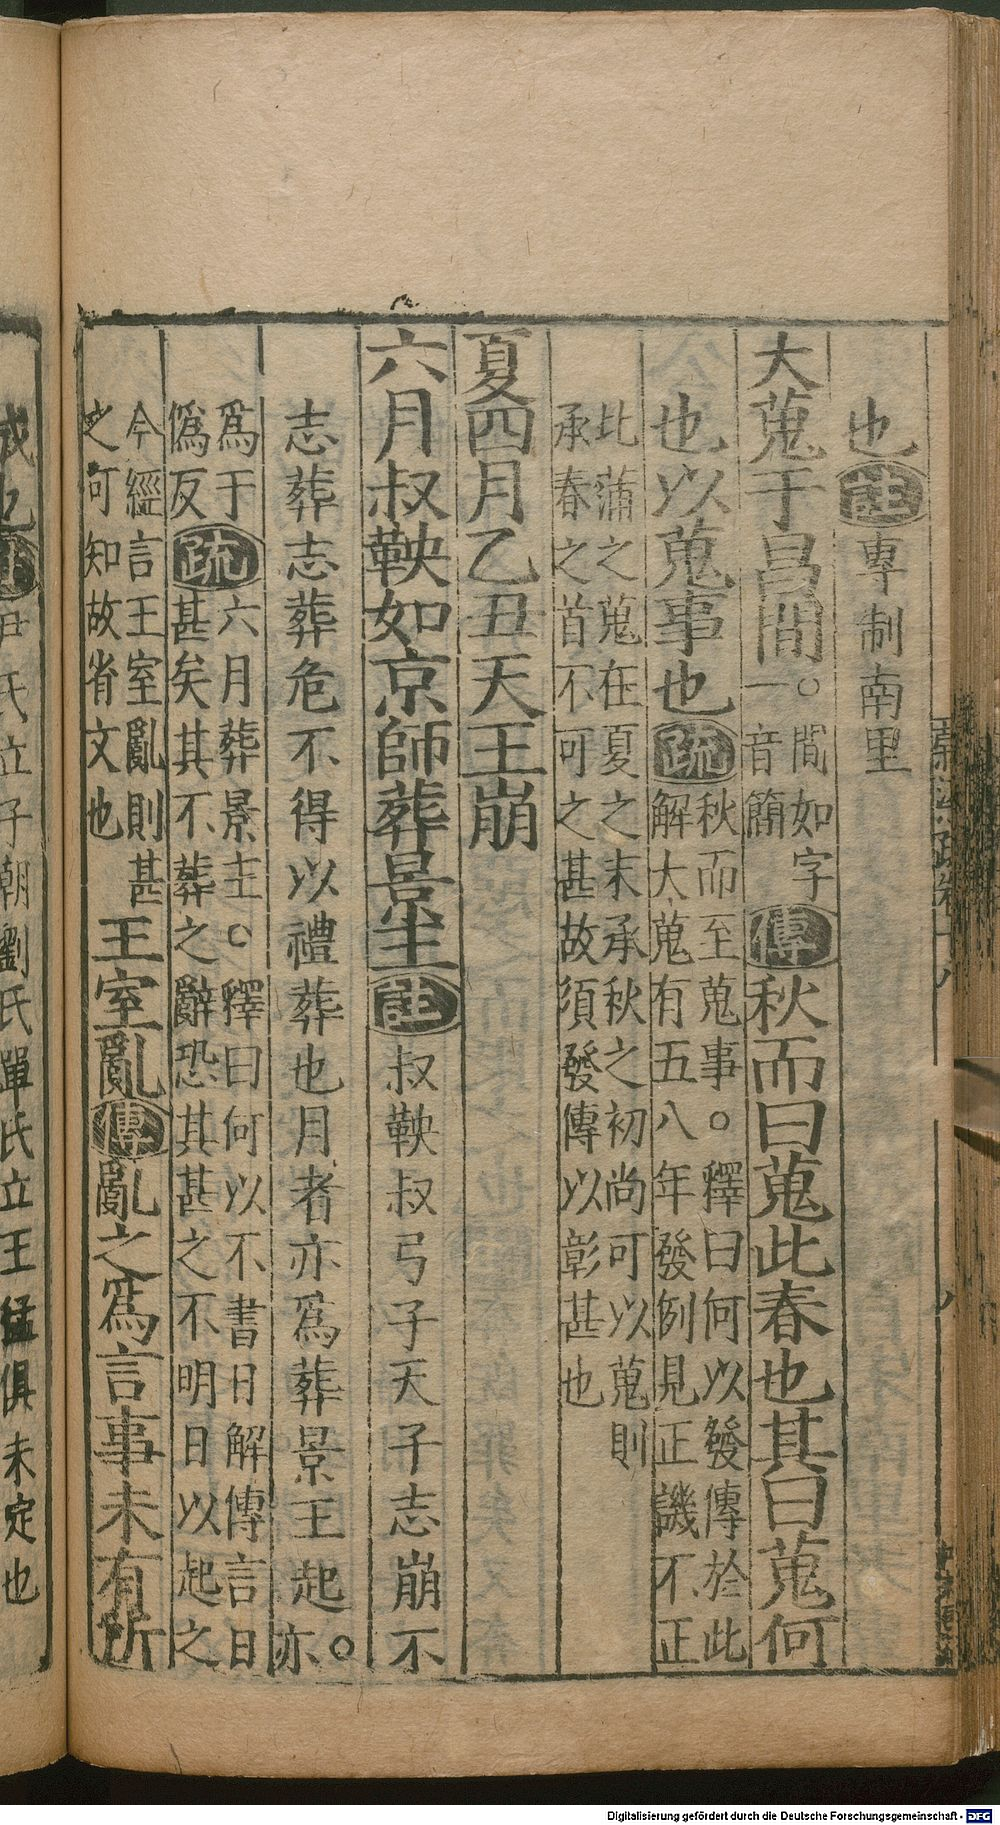 也註專制南里
大蒐于昌間○間如字
一音簡傳秋而曰蒐此春也其曰蒐何
也以蒐事也疏秋而至蒐事○釋曰何以發傳於此
解大蒐有五八年發例見正譏不正
此蒲之蒐在夏之末承秋之初尚可以蒐則
承春之首不可之甚故須發傳以彰甚也
夏四月乙丑天王崩
六月叔鞅如京師葬景王註叔鞅叔弓子天子志崩不
志葬志葬危不得以禮葬也月者亦爲葬景王起○亦
爲于
僞反疏六月葬景王○釋曰何以不書日解傳言日
甚矣其不葬之辭恐其甚之不明日以起之
今經言王室亂則甚
之可知故省文也王室亂傳亂之爲言事未有所
成也註尹氏立子朝劉氏單氏立王猛俱未定也
Digitalisierung gefördert durch die Deutsche Forschungsgemeinschaft - DFG